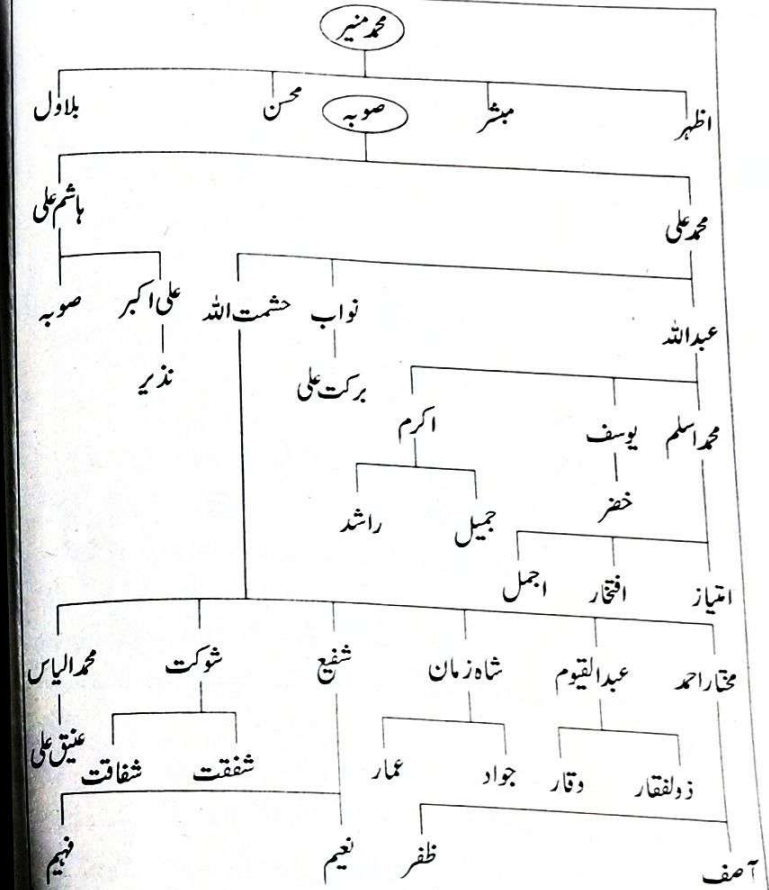 محمد منیر
اظہر مبشر محسن بلاول
صوبہ
محمد علی ہاشم علی
عبداللہ نواب حشمت اللہ علی اکبر صوبہ
برکت علی نذیر
محمد اسلم یوسف اکرم
خضر
جمیل راشد
امتیاز افتخار اجمل
مختار احمد عبدالقیوم شاہ زمان شفیع شوکت محمد الیاس
ذولفقار وقار جواد عمار شفقت شفاقت عتیق علی
آصف ظفر نعیم فہیم